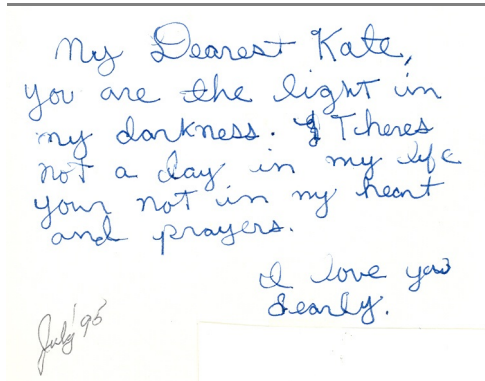 My Dearest Kate,
you are the light in
my darkness. Theres
not a day in my life
your not in my heart
and prayers.
I love you
dearly.
July '95